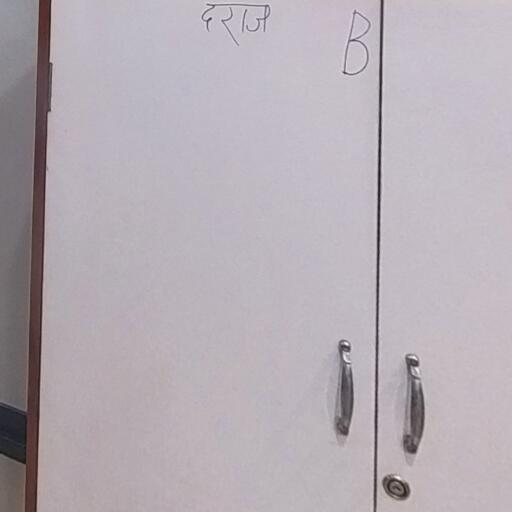 दराज B